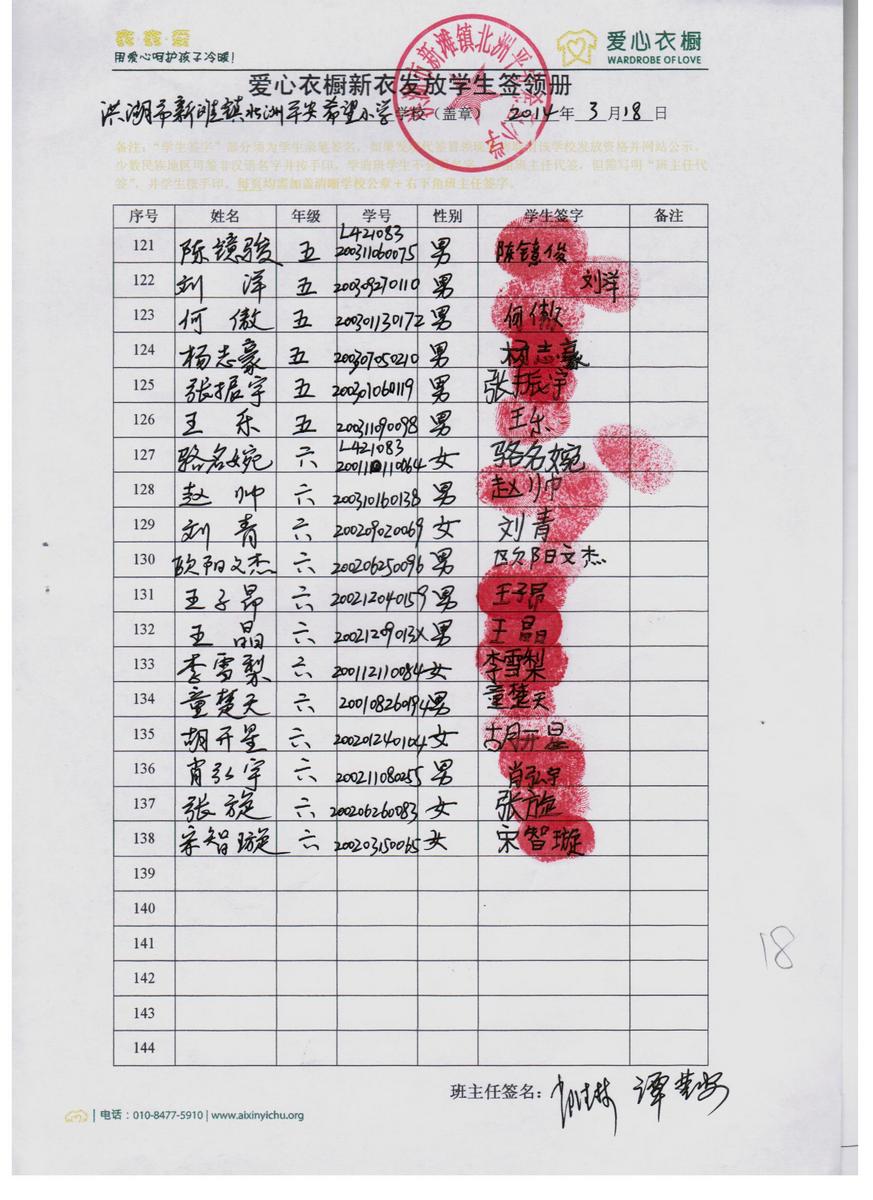 用爱心呵护孩子冷暖!
爱心衣橱
WARDROBE OF LOVE
爱心衣橱新衣发放学生签领册
洪湖市新滩镇北洲平安希望小学 学校（盖章） 2014年 3月18日
序号 姓名 年级 学号 性别 学生签字 备注
121 陈镜骏 五 L421083 200311060075 男 陈镜俊
122 刘洋 五 200309270110 男 刘洋
123 何傲 五 200301130172 男 何傲
124 杨志豪 五 200307050210 男 杨志豪
125 张振宇 五 200301060119 男 张振宇
126 王乐 五 200311090098 男 王乐
127 骆名婉 六 L421083 女 骆名婉
128 赵帅 六 200310160138 男 赵帅
129 刘青 六 200209020069 女 刘青
130 欧阳文杰 六 200206250096 男 欧阳文杰
131 王子昂 六 200212040159 男 王子昂
132 王晶 六 20021209013X 男 王晶
133 李雪梨 六 200112110084 女 李雪梨
134 童楚天 六 200108260194 男 童楚天
135 胡开星 六 200201240104 女 胡开星
136 肖弘宇 六 200211080255 男 肖弘宇
137 张旋 六 200206260083 女 张旋
138 宋智璇 六 200203150065 女 宋智璇
139
140
141
142
143
144
班主任签名：
电话：010-8477-5910 | www.aixinyichu.org
18